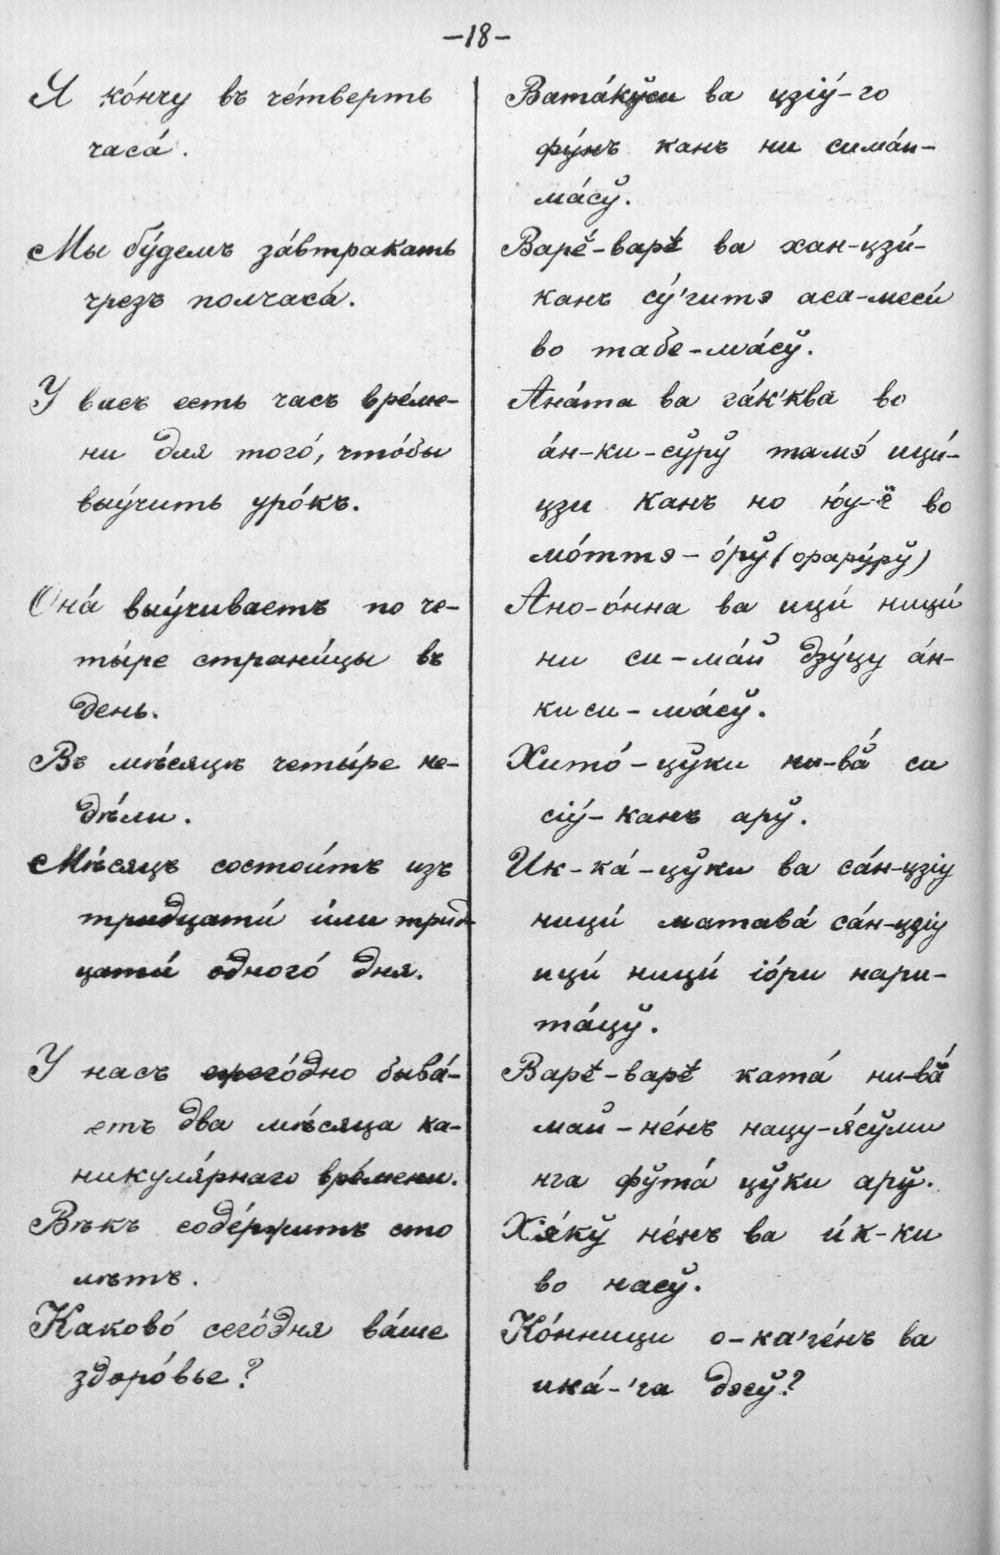 –18–
Я ко́нчу въ че́тверть
часа́.
Мы бу́демъ за́втракать
чрезъ полчаса́.
У васъ есть часъ вре́ме-
ни для того́, что́бы
вы́учить уро́къ.
Она́ выу́чиваетъ по че-
ты́ре страни́цы въ
день.
Въ мѣ́сяцѣ четы́ре не-
дѣ́ли.
Мѣ́сяцъ состои́тъ изъ
тридцати́ и́ли трид-
цати́ одного́ дня.
У насъ ежего́дно быва́-
етъ два мѣ́сяца ка-
никуля́рнаго вре́мени.
Вѣкъ соде́ржитъ сто
лѣтъ.
Каково́ сего́дня ва́ше
здоро́вье?
Вата́кўси ва цзіу́-го
фу́нъ канъ ни сима́и-
ма́сў.
Варе́-варе́ ва хан-цзи́-
канъ су́'гитэ аса-меси́
во табе-ма́сў.
Ана́та ва га́к'ква во
а́н-ки-сўрў тамэ́ ици́-
цзи канъ но ю́у-ё во
мо́ттэ-о́рў (орару́рў)
Ано-о́нна ва ици́ ници́
ни си-ма́й дзу́цу а́н-
киси-ма́сў.
Хито́-цўки ни-вӑ́ си
сіу́-канъ арў.
Ик-ка́-цўки ва са́н-цзіу
ници́ матава́ са́н-цзіу
ици́ ници́ іо́ри нари-
та́цў.
Варе́-варе́ ката́ ни-вӑ́
май-не́нъ нацу-я́сўми
нга фўта́ цўки арў.
Хя́кў не́нъ ва и́к-ки
во насў.
Ко́нници о-ка'ге́нъ ва
ика́-'га дэсў?